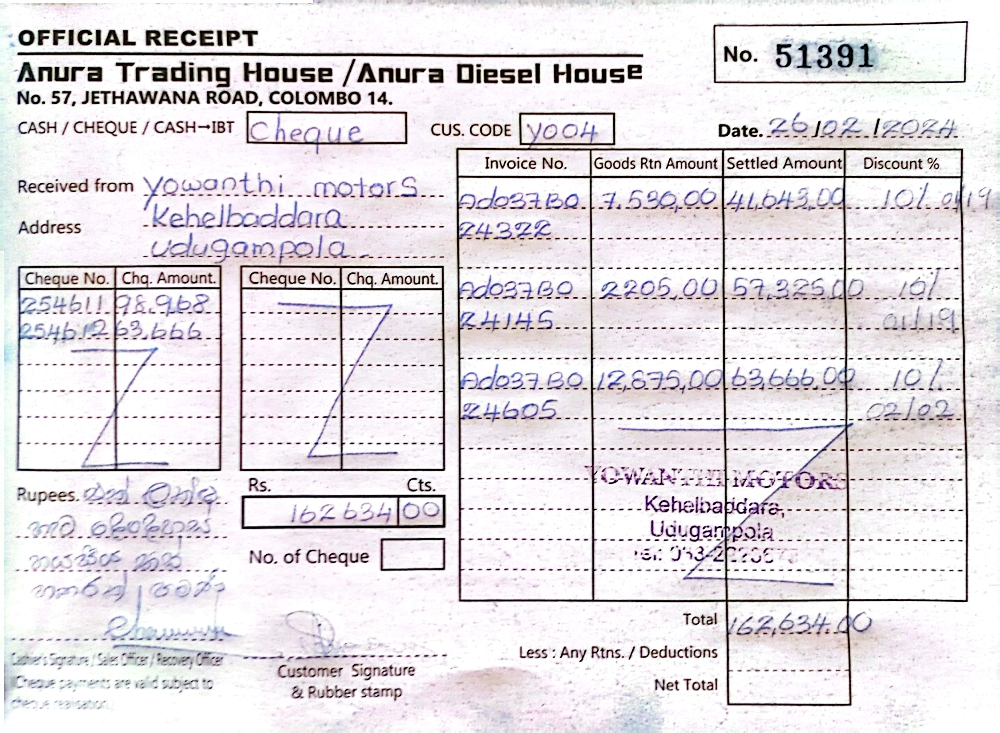 OFFICIAL RECEIPT
No. 51391
Anura Trading House /Anura Diesel House
No. 57, JETHAWANA ROAD, COLOMBO 14.
CASH / CHEQUE / CASH→IBT Cheque CUS. CODE Y004 Date. 26/02/2024
Invoice No. Goods Rtn Amount Settled Amount Discount %
Received from Yowanthi motors
Ad037B0 7,530,00 41,643,00 10% 01/19
Address Kehelbaddara
24322
Udugampola
Cheque No. Chq. Amount. Cheque No. Chq. Amount.
Ad037B0 2205,00 57,325,00 10%
254611 98,968
24145 01/19
254612 63,666
Ad037B0 12,675,00 63,666,00 10%
24605 02/02
YOWANTHI MOTORS
Kehelbaddara,
Udugampola
Rupees. එක් ලක්ෂ
Rs. Cts.
හැට දෙදහස්
162 634 00
හයසිය තිස්
No. of Cheque
හතරක් පමණි
Total 162,634.00
Less : Any Rtns. / Deductions
Net Total
Cashier's Signature / Sales Officer / Recovery Officer
Customer Signature
& Rubber stamp
Cheque payments are valid subject to
cheque realisation.